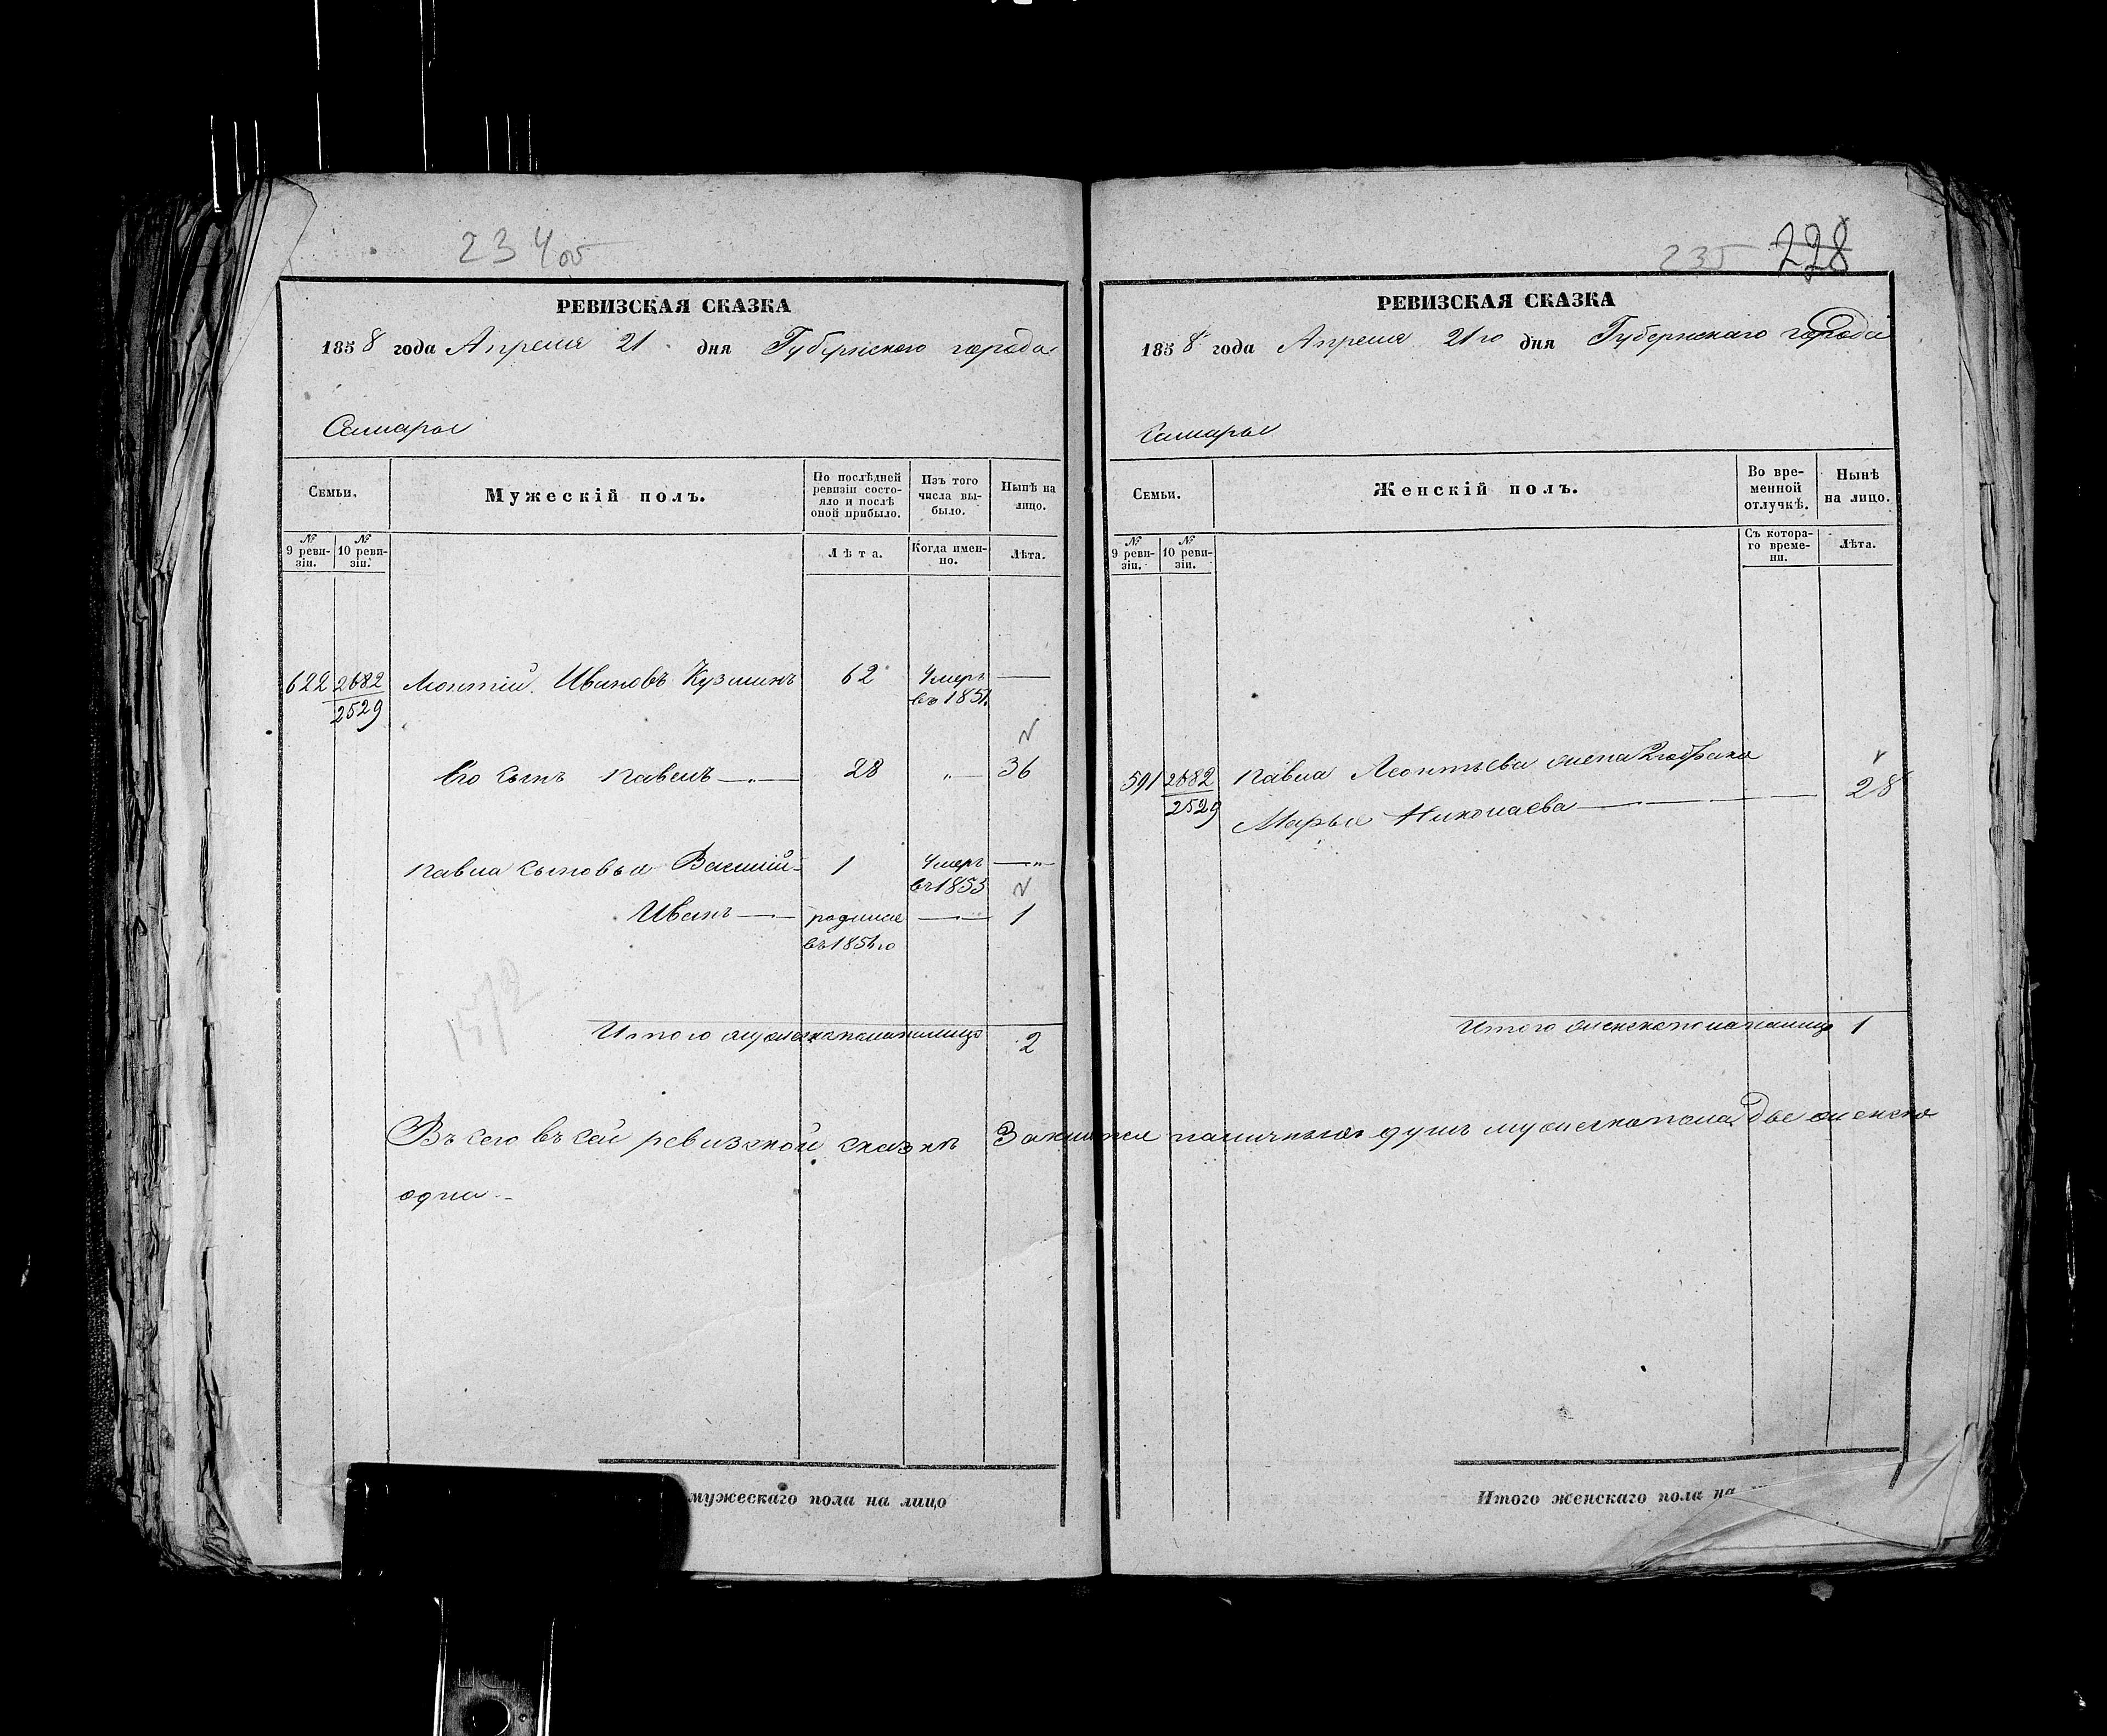 234 об
РЕВИЗСКАЯ СКАЗКА
1858 года Апреля 21 дня Губернского города
Самары
Семьи.
Мужескій полъ.
По послѣдней ревизіи состояло и послѣ оной прибыло.
Изъ того числа выбыло.
Нынѣ на лицо.
№ 9 ревизіи.
№ 10 ревизіи.
Лѣта.
Когда именно.
Лѣта.
622 2682/2529 Леонтій Ивановъ Кузминъ 62 Умеръ въ 1851. —
Его сынъ Павелъ —„— 28 „— 36
Павла сыновья Василій 1 Умеръ въ 1853 —„
Иванъ — родился въ 185 го — 1
1572
Итого мужеска пола на лицо 2
Въсего въ сей ревизской сказкѣ Значится наличныхъ душъ мужеска пола две женска
одна
мужескаго пола на лицо
235 228
РЕВИЗСКАЯ СКАЗКА
1858 года Апреля 21го дня Губернскаго города
Самары
Семьи.
Женскій полъ.
Во временной отлучкѣ.
Нынѣ на лицо.
№ 9 ревизіи.
№ 10 ревизіи.
Съ котораго времени.
Лѣта.
591 2682/2529 Павла Леонтьева жена 2го брака
Марья Николаева 28
Итого женска пола на лицо 1
Итого женскаго пола на